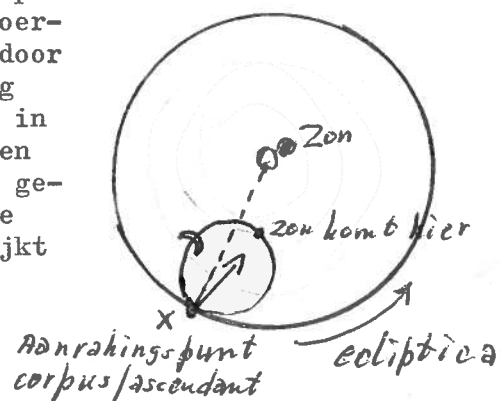 oer-
door
g
in
en
ge-
e
jkt
Zon
zon komt hier
X
Aanrakingspunt
corpus/ascendant
ecliptica